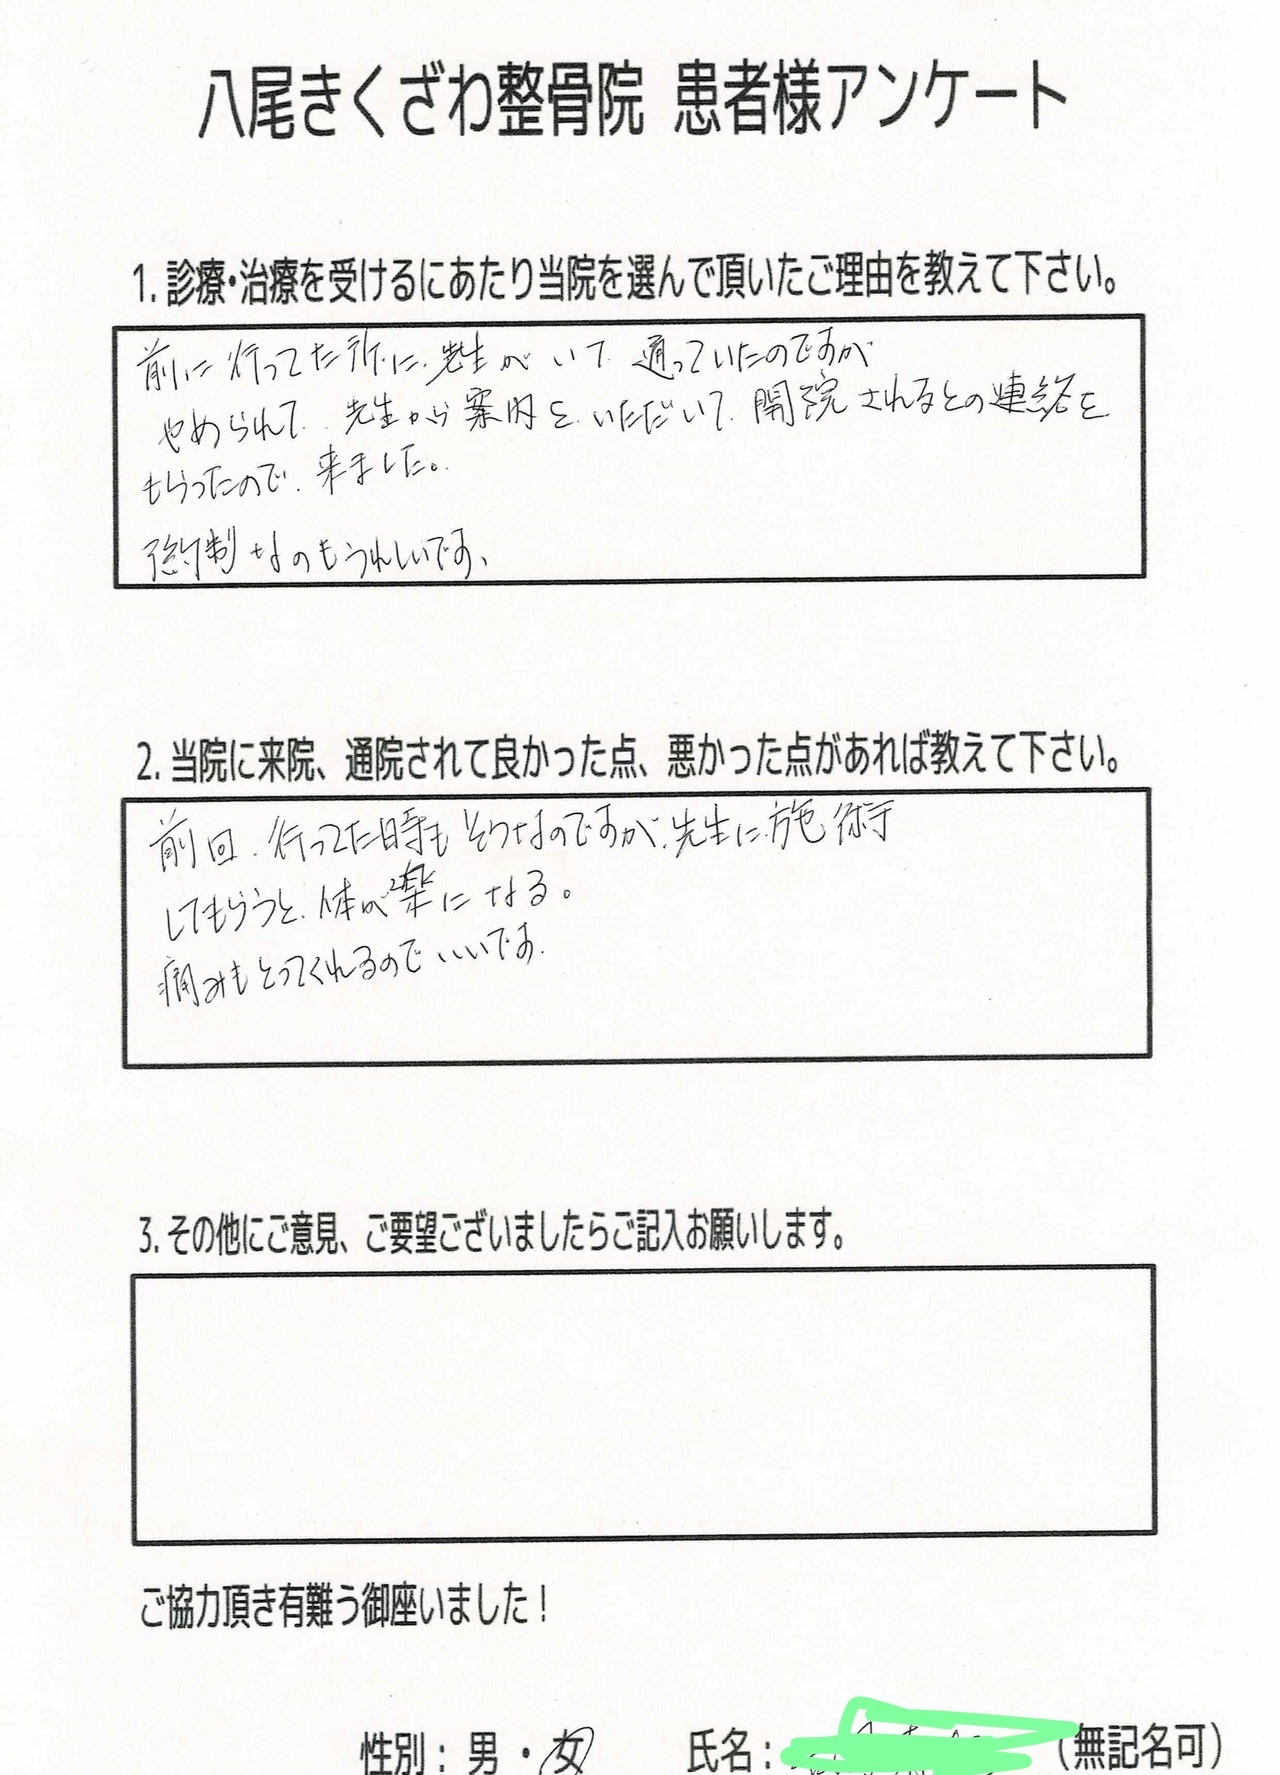 八尾きくざわ整骨院 患者様アンケート
1. 診療・治療を受けるにあたり当院を選んで頂いたご理由を教えて下さい。
前に行ってた所に、先生がいて 通っていたのですが
やめられて、先生から案内を、いただいて、開院されるとの連絡を
もらったので、来ました。
予約制なのもうれしいです、
2. 当院に来院、通院されて良かった点、悪かった点があれば教えて下さい。
前回、行ってた時もそうなのですが、先生に施術
してもらうと、体が楽になる。
痛みもとってくれるのでいいです.
3. その他にご意見、ご要望ございましたらご記入お願いします。
ご協力頂き有難う御座いました!
性別: 男・女 氏名: (無記名可)